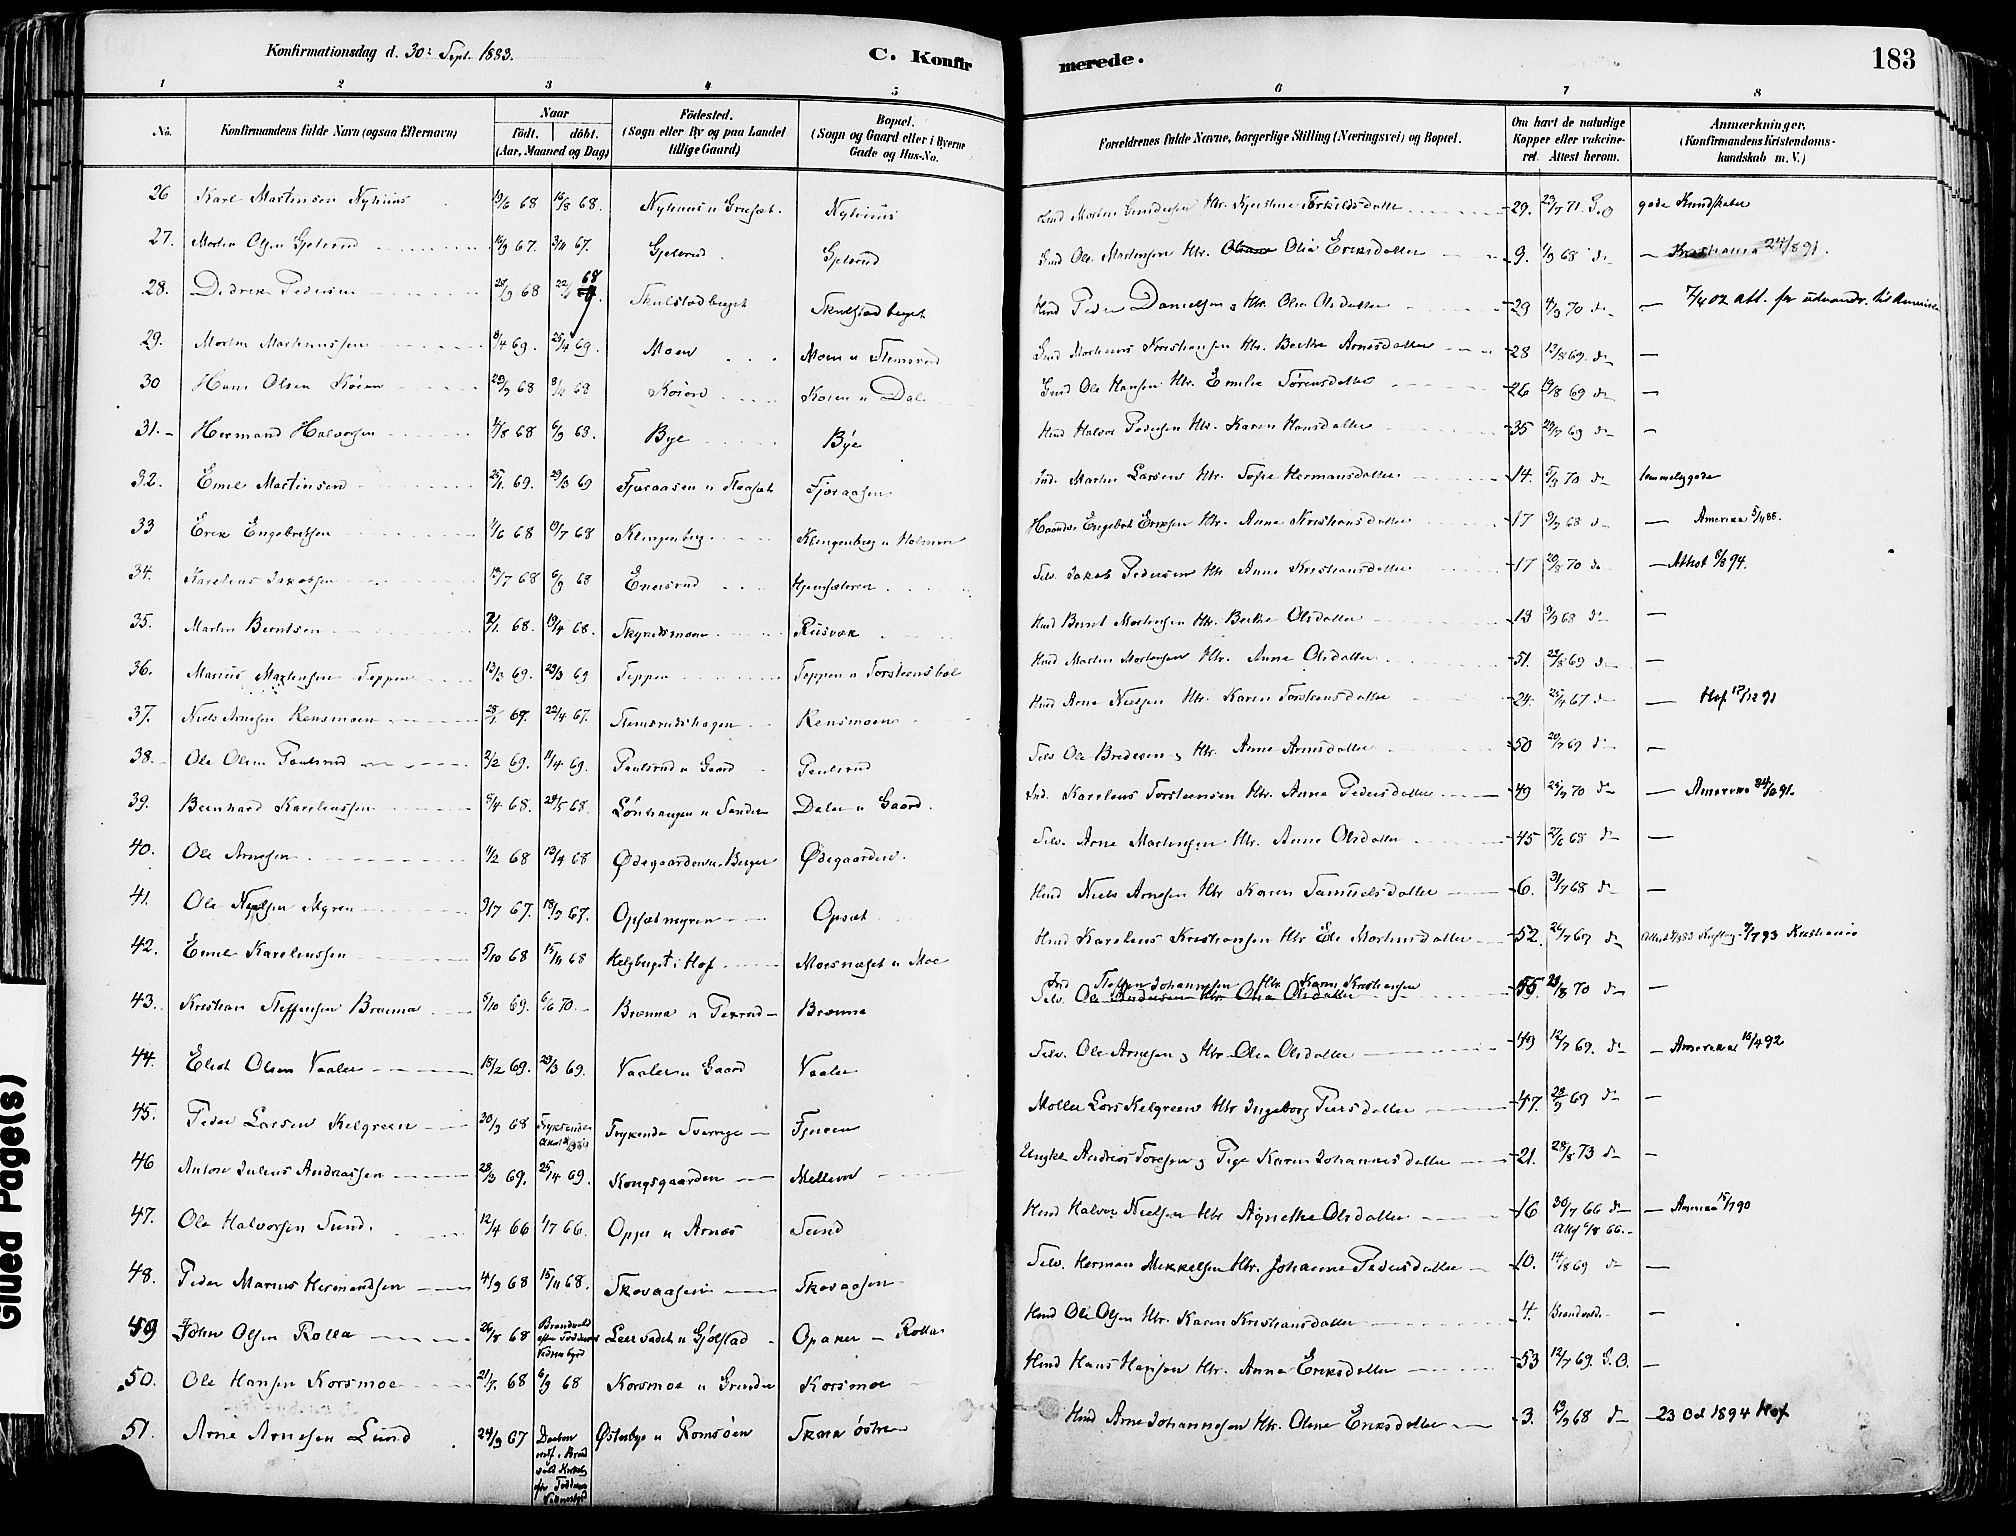 Konfirmationsdag d. 30: Sept. 1883.
C. Konfir
merede.
183
1 2 3 4 5 6 7 8
No.
Konfirmandens fulde Navn (ogsaa Efternavn)
Naar
födt. döbt.
(Aar, Maaned og Dag)
Födested.
(Sogn eller By og paa Landet
tillige Gaard)
Bopæl.
(Sogn og Gaard eller i Byerne
Gade og Hus-No.
Forældrenes fulde Navne, borgerlige Stilling (Næringsvei) og Bopæl.
Om havt de naturlige
Kopper eller vakcine-
ret. Attest herom.
Anmærkninger.
(Konfirmandens Kristendoms-
kundskab m. V.)
26 Karl Martinsen Nyhuus 19/6 68 16/8 68. Nyhuus u Grasæt. Nyhuus Morten Gundersen Htr. Kjerstine Torkildsdatter 29. 29/7 71. S.O gode Kundskaber
27. Morten Olsen Gjelsrud 67. 67. Gjelsrud Gjelsrud Ole Mortensen Htr. Olia Eriksdatter 9. 68 do — Kristiania 24/8 91.
28. Didrik Pedersen 68 68 Skulstadberget Skulstadberget Hmd Peder Danielsen og Htr. Olia Olsdatter 29 4/9 70 do — 7/4 02 att. for udvandr. til Amerika
29. Morten Martinussen 8/4 69. 25/4 69. Moen Moen u Stemsrud Martinus Kristiansen Htr. Berthe Arnesdatter 28 12/8 69. do —
30 Hans Olsen Koien 29/9 68 68 Koien Koien u Dal Ole Hansen Htr. Emilie Sørensdatter 26 19/8 69 do —
31. Hermand Halvorsen 4/8 68 6/9 68. Bye Bye Hmd Halvor Pedersen Htr. Karen Hansdatter 35 29/7 69 do —
32. Emil Martinsen 25/1 69. 29/3 69 Fjøraasen u Stasæt Fjøraasen Ind. Martin Larsen Htr. Sofie Hermansdatter 14. 5/9 70 do temmelig gode
33 Erik Engebretsen 68 19/7 68 Klingenberg Klingenberg u Holmen Engebret Eriksen Htr. Anne Kristiansdatter 17 9/9 68 do — Amerika 5/4 88.
34. Karelius Jakobsen 13/7 68 6/9 68 Enersrud Hjemsæteren Selv. Jakob Pedersen Htr. Anne Kristiansdatter 17 29/8 70 do — Attest 6/8 94.
35. Martin Berntsen 2/1. 68. 19/4 68. Skyrudsmoen Risvæk Hmd Bernt Mortensen Htr. Berthe Olsdatter 13 9/9 68 do —
36. Marius Martinsen Teppen 12/3 69. 29/3 69 Teppen Teppen u Torstensbøl Hmd Martin Mortensen Htr. Anne Olsdatter 51. 22/8 69 do —
37. Niels Arnesen Rensmoen 67. 22/4 67. Stemsrudshagen Rensmoen Hmd Arne Nielsen Htr. Karen Torstensdatter 24. 25/4 67 do — Hof 17/12 91
38. Ole Olsen Paulsrud 2/2 69. 11/4 69. Paulsrud u Gaard Paulsrud Selv Ole Bredesen og Htr. Anne Arnesdatter 50 20/7 69 do —
39. Bernhard Kareliussen 5/4 68. 24/5 68. Lønhaugen u Sander Dalen u Gaard. Ind. Karelius Torstensen Htr. Anne Pedersdatter 49 70 do — Amerika 91.
40. Ole Arnesen 11/2 68 12/4 68 Ødegaarden u Berger Ødegaarden. Selv. Arne Martinsen Htr. Anne Olsdatter 45 27/6 68 do —
41. Ole Nielsen Myren 9/7 67. 67. Opsætmyren Opsæt Hmd Niels Arnesen Htr Karen Samuelsdatter 6. 31/7 68 do —
42. Emil Kareliussen 5/10 68 15/11 68 Helgberget i Hof Moesnæset u Moe Hmd Karelius Kristiansen Htr Ede Mortensdatter 52. 26/7 69 do 9/7 93 Kristiania
43. Kristian Steffensen Brænna 5/10 69. 6/6 70. Brænna u Persrud Brænna Ind Steffen Johannesen Htr Karen Kristiansen
Selv. Ole Andersen Htr Olia Olsdatter 55. 28/8 70 do —
44. Elist Olsen Vaaler 18/2 69. 29/3 69. Vaaler u Gaard Vaaler Selv. Ole Arnesen og Htr Olia Olsdatter 49 12/7 69. do — Amerika 16/4 92
45. Peder Larsen Kelgreen 30/9 68 Fryksende Frykende Sverrige Fjøren Møller Lars Kelgreen Htr Ingeborg Persdatter 47. 28/9 69 do —
46 Anton Julius Andreassen 28/3 69. 25/4 69. Kongsgaarden Mellem Ungkl Andreas Toresen og Pige Karen Johannesdatter 21. 28/8 73 do —
47. Ole Halvorsen Sund. 12/4 66 1/7 66. Opper u Arnæs Sund Hmd Halvor Nielsen Htr Agnethe Olsdatter 16 30/7 66 do — Amerika 15/7 90
48. Peder Marius Hermandsen 4/9 68 15/11 68. Skovaasen Skovaasen Selv. Herman Mikkelsen Htr. Johanne Pedersdatter 10. 14/8 69 do —
49 Johan Olsen Rolla 26/8 68 Brandvold Leervadet u Gjølstad Opaker — Rolla Hmd Ole Olsen Htr. Karen Kristiansdatter 4. Brandvold. —
50. Ole Hansen Korsmoe 21/7. 68 6/9 68 Korsmoe u Grinder Korsmoe Hmd Hans Hansen Htr. Anne Eriksdatter 53 12/7 69. S.O. —
51. Arne Arnesen Lund 24/9 67 Østerbye u Romsøen Skara østre Hmd Arne Johannesen Htr. Oline Eriksdatter 3. 13/9 68 do — 23 Oct 1894 Hof
Glued Page(s)